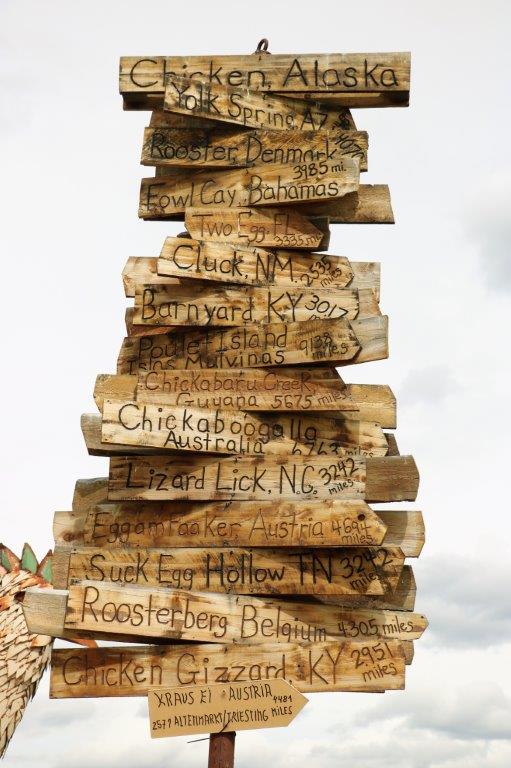 Chicken, Alaska
Yolk Spring, AZ
Rooster, Denmark
3985 mi.
Fowl Cay, Bahamas
Two Egg, FL
3335 miles
Cluck, NM.
2535 miles
Barnyard, KY 3017 miles
Poulet Island
Islas Malvinas 9138 miles
Chickabaru Creek
Guyana 5675 miles
Chickaboogalla
Australia 6743 miles
Lizard Lick, N.C. 3242 miles
Eggam Faaker, Austria 4694 miles
Suck Egg Hollow TN 3242 miles
Roosterberg Belgium 4305 miles
Chicken Gizzard KY 2951 miles
XRAUS EI AUSTRIA 4481
2571 ALTENMARKT/TRIESTING MILES